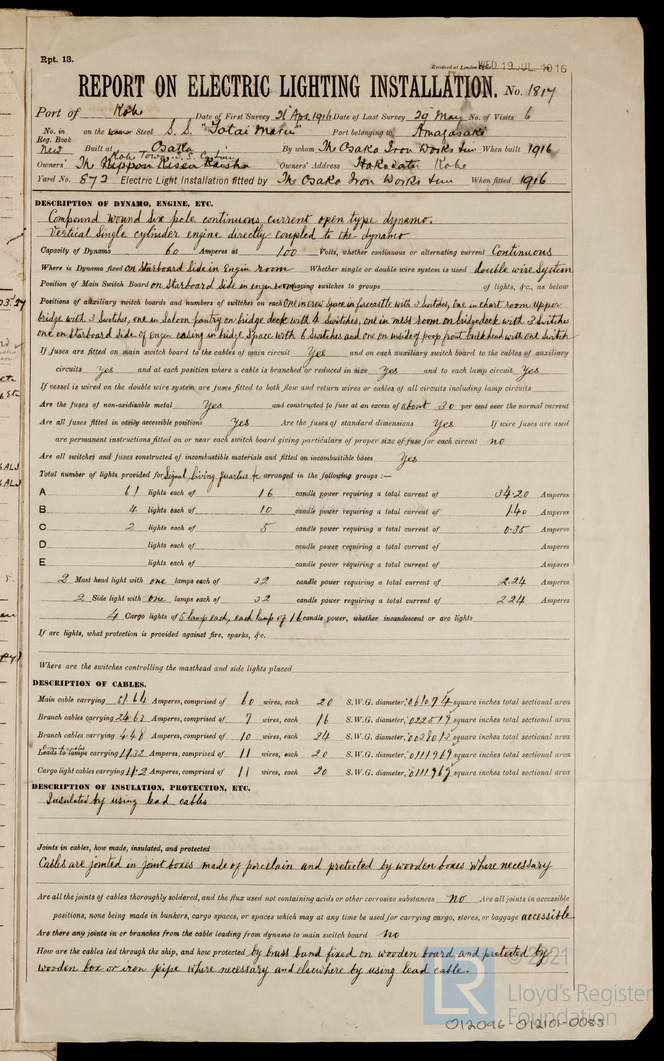 Rpt. 13.
Received at London WED. 19 JUL. 1916
REPORT ON ELECTRIC LIGHTING INSTALLATION. No. 1817
Port of Kobe Date of First Survey 21st Apr. 1916 Date of Last Survey 29th May No. of Visits 6
No. in Reg. Book New on the Steel S.S. "Totai Maru" Port belonging to Amagasaki
Built at Osaka By whom The Osaka Iron Works Ltd When built 1916
Owners' The Nippon Kisen Kaisha Owners' Address Hakodate Kobe
Yard No. 872 Electric Light Installation fitted by The Osaka Iron Works Ltd When fitted 1916
DESCRIPTION OF DYNAMO, ENGINE, ETC.
Compound wound Six pole continuous current open type dynamo.
Vertical Single cylinder engine directly coupled to the dynamo
Capacity of Dynamo 60 Amperes at 100 Volts, whether continuous or alternating current Continuous
Where is Dynamo fixed on Starboard Side in Engin room Whether single or double wire system is used double wire System
Position of Main Switch Board on Starboard Side in engin room having switches to groups of lights, &c., as below
Positions of auxiliary switch boards and numbers of switches on each One in crew space in forecastle with 3 Switches, one in chart room upper
bridge with 3 Switches, one in Saloon pantry on bridge deck with 4 Switches, one in mess room on bridge deck with 3 Switches
one on Starboard Side of engin casing in bridge Space with 6 Switches and one on inside of poop front bulkhead with one Switch
If fuses are fitted on main switch board to the cables of main circuit Yes and on each auxiliary switch board to the cables of auxiliary
circuits Yes and at each position where a cable is branched or reduced in size Yes and to each lamp circuit Yes
If vessel is wired on the double wire system are fuses fitted to both flow and return wires or cables of all circuits including lamp circuits
Are the fuses of non-oxidizable metal Yes and constructed to fuse at an excess of about 30 per cent over the normal current
Are all fuses fitted in easily accessible positions Yes Are the fuses of standard dimensions Yes If wire fuses are used
are permanent instructions fitted on or near each switch board giving particulars of proper size of fuse for each circuit no
Are all switches and fuses constructed of incombustible materials and fitted on incombustible bases Yes
Total number of lights provided for Signal, living quarters &c arranged in the following groups :—
A 61 lights each of 16 candle power requiring a total current of 34.20 Amperes
B 4 lights each of 10 candle power requiring a total current of 1.40 Amperes
C 2 lights each of 5 candle power requiring a total current of 0.35 Amperes
D lights each of candle power requiring a total current of Amperes
E lights each of candle power requiring a total current of Amperes
2 Mast head light with one lamps each of 32 candle power requiring a total current of 2.24 Amperes
2 Side light with one lamps each of 32 candle power requiring a total current of 2.24 Amperes
4 Cargo lights of 5 lamp each, each lamp of 16 candle power, whether incandescent or arc lights
If arc lights, what protection is provided against fire, sparks, &c.
Where are the switches controlling the masthead and side lights placed
DESCRIPTION OF CABLES.
Main cable carrying 51.64 Amperes, comprised of 60 wires, each 20 S.W.G. diameter, .061074 square inches total sectional area
Branch cables carrying 24.63 Amperes, comprised of 7 wires, each 16 S.W.G. diameter, .022519 square inches total sectional area
Branch cables carrying 4.48 Amperes, comprised of 10 wires, each 24 S.W.G. diameter, .003801 square inches total sectional area
Leads to lamps carrying 11.32 Amperes, comprised of 11 wires, each 20 S.W.G. diameter, .0111969 square inches total sectional area
Cargo light cables carrying 11.2 Amperes, comprised of 11 wires, each 20 S.W.G. diameter, .0111969 square inches total sectional area
DESCRIPTION OF INSULATION, PROTECTION, ETC.
Insulated by using lead cables
Joints in cables, how made, insulated, and protected
Cables are jointed in joint boxes made of porcelain and protected by wooden boxes where necessary
Are all the joints of cables thoroughly soldered, and the flux used not containing acids or other corrosive substances no Are all joints in accessible
positions, none being made in bunkers, cargo spaces, or spaces which may at any time be used for carrying cargo, stores, or baggage accessible
Are there any joints in or branches from the cable leading from dynamo to main switch board no
How are the cables led through the ship, and how protected by brass band fixed on wooden board and protected by
wooden box or iron pipe where necessary and elsewhere by using lead cable.
© 2021
LR
Lloyd's Register
Foundation
012096-012101-0083